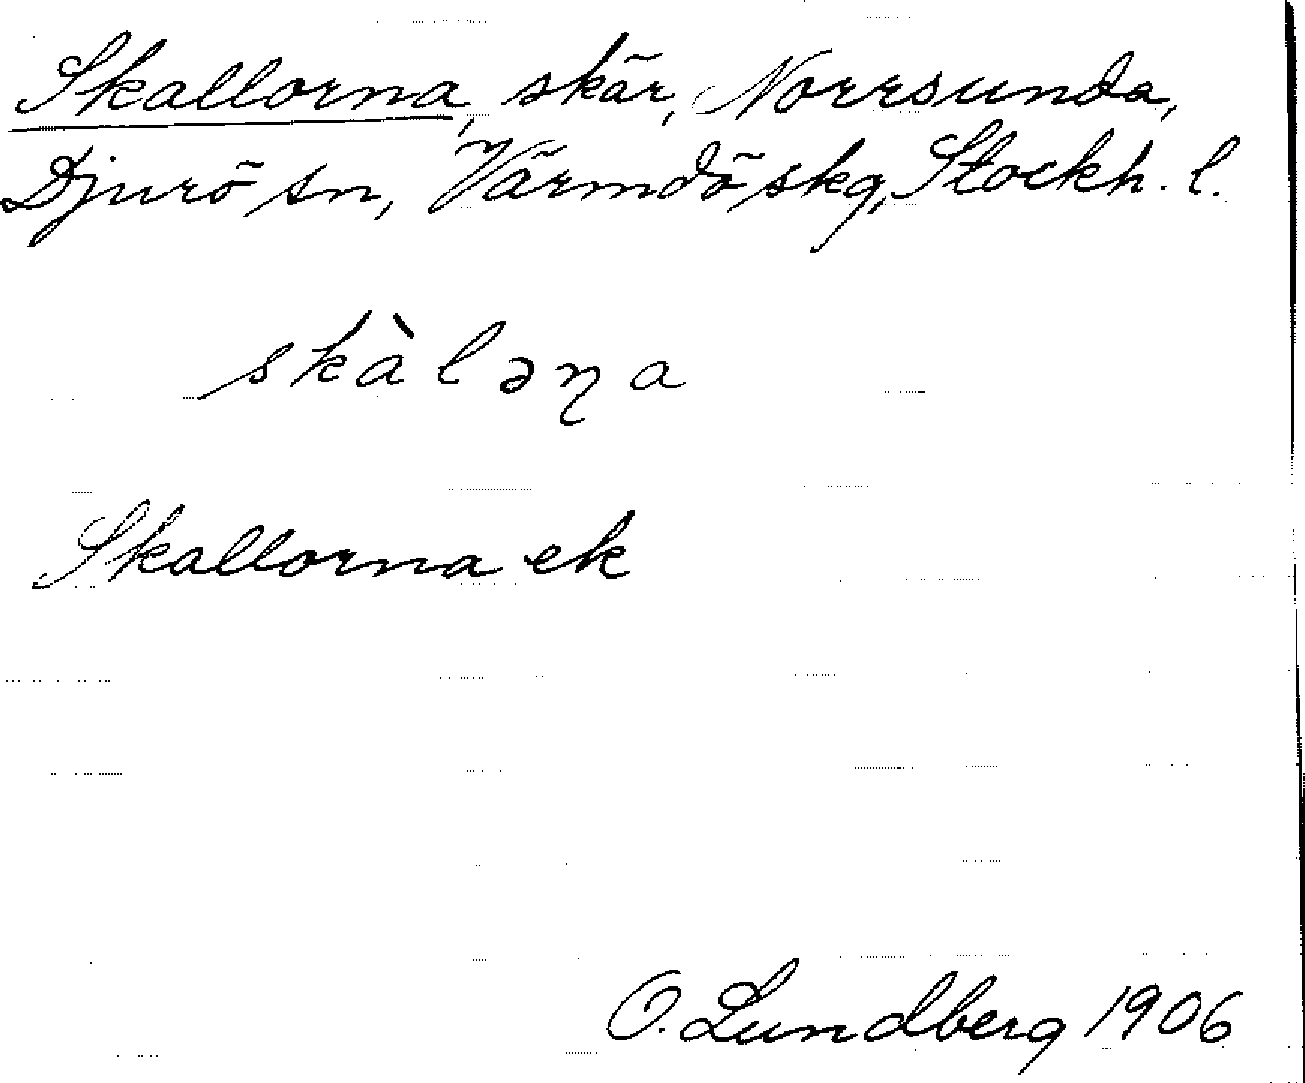 Skallorna, skär, Norrsunda,
Djurö sn, Värmdö skg, Stockh. l.
skàləṇa
Skallorna ek
O. Lundberg 1906